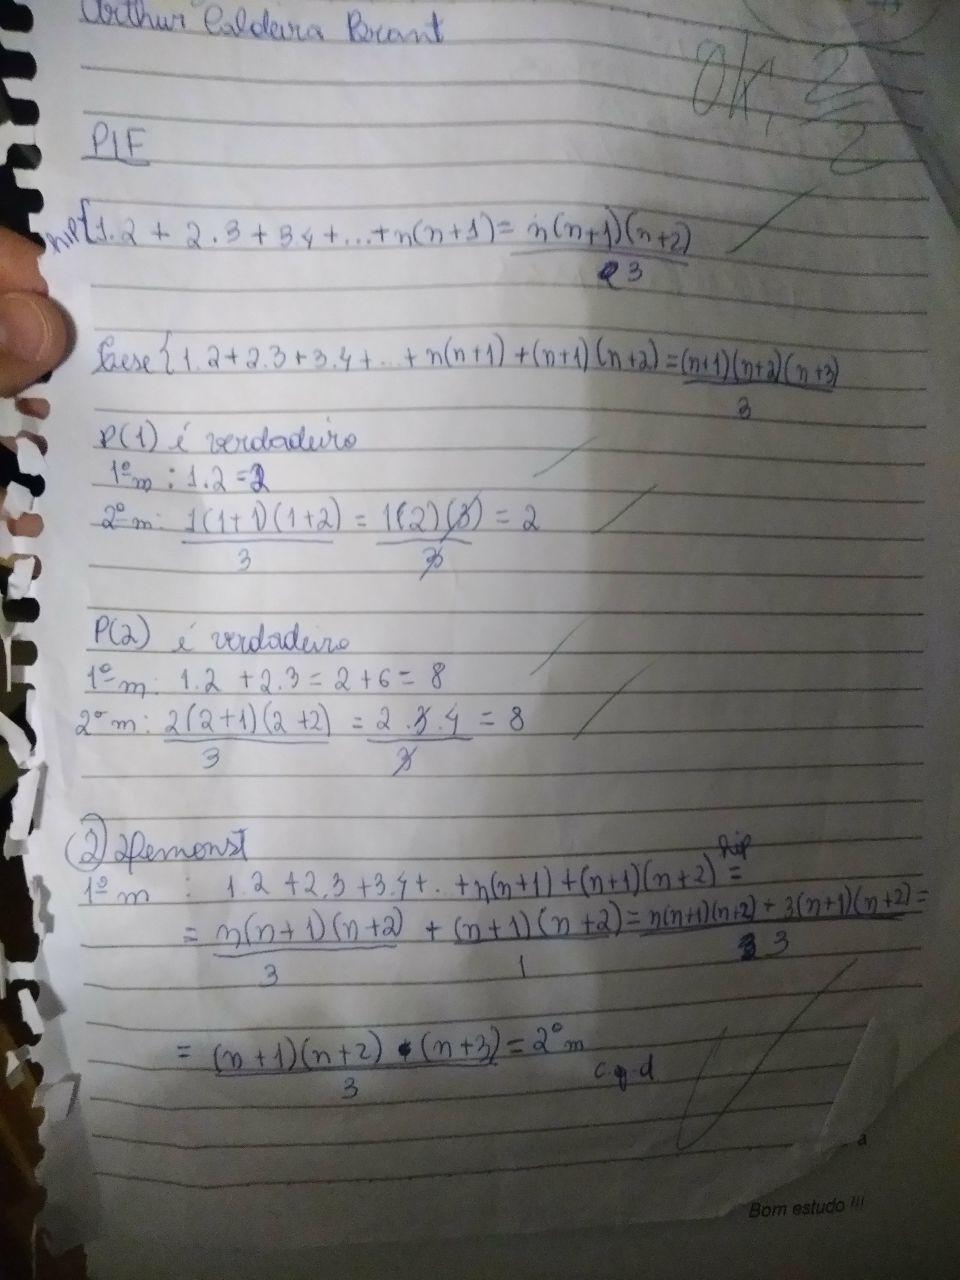 Arthur Caldeira Brant
Ok, 2/2
PIF
hip{1.2 + 2.3 + 3.4 + ... + n(n+1) = n(n+1)(n+2)/3
tese {1.2+2.3+3.4+...+ n(n+1) + (n+1)(n+2) = (n+1)(n+2)(n+3)/3
P(1) é verdadeiro
1º m : 1.2 = 2
2º m: 1(1+1)(1+2)/3 = 1(2)(3)/3 = 2
P(2) é verdadeiro
1º m: 1.2 + 2.3 = 2 + 6 = 8
2º m: 2(2+1)(2+2)/3 = 2.3.4/3 = 8
2 Demonst
1º m : 1.2 + 2.3 + 3.4 + ... + n(n+1) + (n+1)(n+2) hip =
= n(n+1)(n+2)/3 + (n+1)(n+2)/1 = n(n+1)(n+2) + 3(n+1)(n+2)/3 =
= (n+1)(n+2) • (n+3)/3 = 2º m
c.q.d
a
Bom estudo !!!